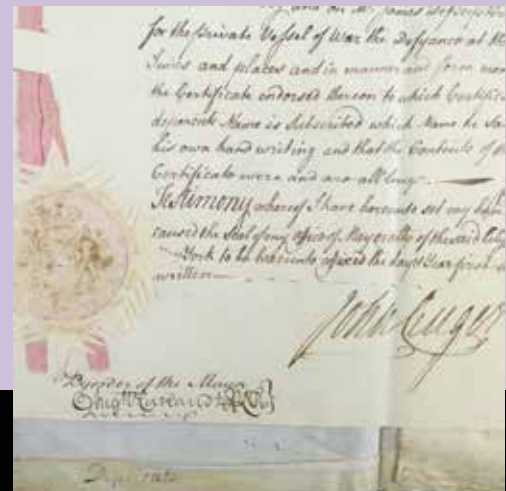 and on Mr James
for the private Vessel of War the Defyance at the
times and places and in manner and form men
the Certificate endorsed thereon to which Certifica
deponents Name is Subscribed which Name he Sa
his own hand writing and that the Contents of th
Certificate were and are all true.
Testimony whereof I have hereunto set my
caused the Seal of my office of Mayoralty of the said City
York to be hereunto affixed the day & Year first
written
John Cruger
By order of the Mayor
Duplicate